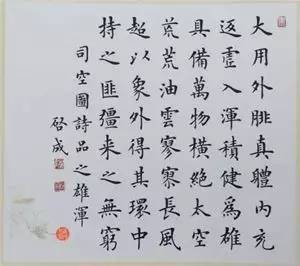 大用外腓真體內充
返虛入渾積健爲雄
具備萬物橫絕太空
荒荒油雲寥寥長風
超以象外得其環中
持之匪彊來之無窮
司空圖詩品之雄渾
啓成